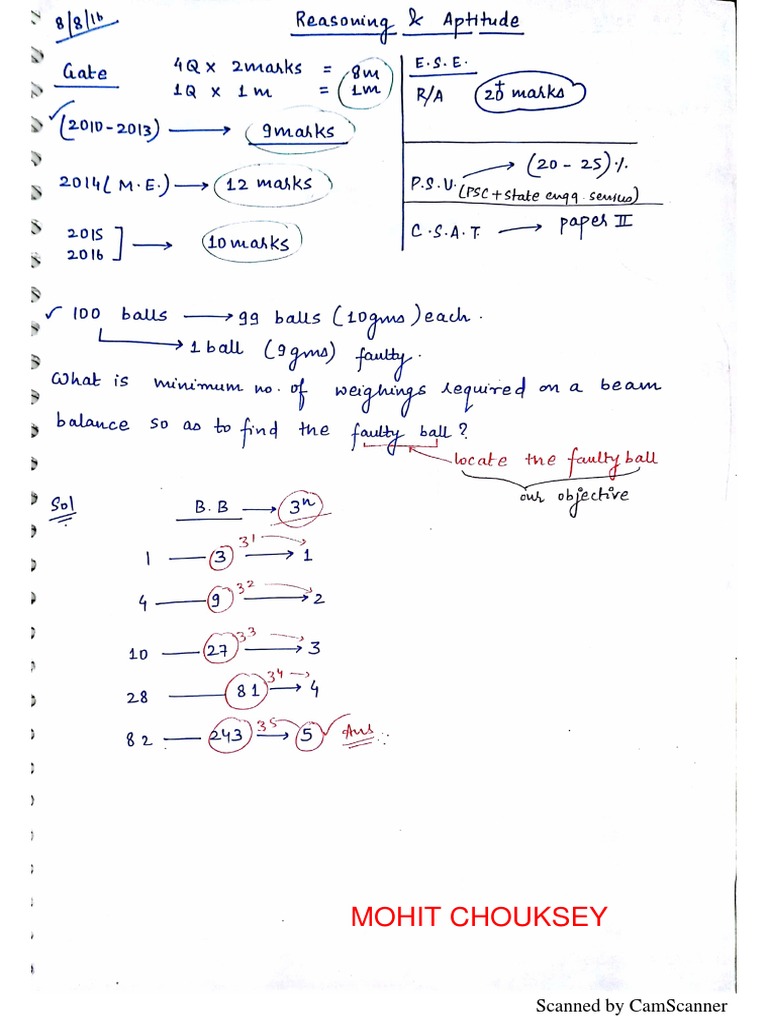 8/8/16
Reasoning & Aptitude
Gate
4Q x 2marks = 8m
1Q x 1m = 1m
(2010-2013) → 9marks
2014 (M.E.) → 12 marks
2015
2016 ] → 10marks
E.S.E.
R/A 20+ marks
P.S.U. → (20 - 25)%
(PSC + State engg. services)
C.S.A.T. → paper II
✓ 100 balls → 99 balls (10gms) each.
→ 1 ball (9gms) faulty.
What is minimum no. of weighings required on a beam
balance so as to find the faulty ball?
locate the faulty ball
our objective
Sol
B.B → 3ⁿ
1 — 3 3¹ → 1
4 — 9 3² → 2
10 — 27 3³ → 3
28 — 81 3⁴ → 4
82 — 243 3⁵ → 5 ✓ Ans
MOHIT CHOUKSEY
Scanned by CamScanner